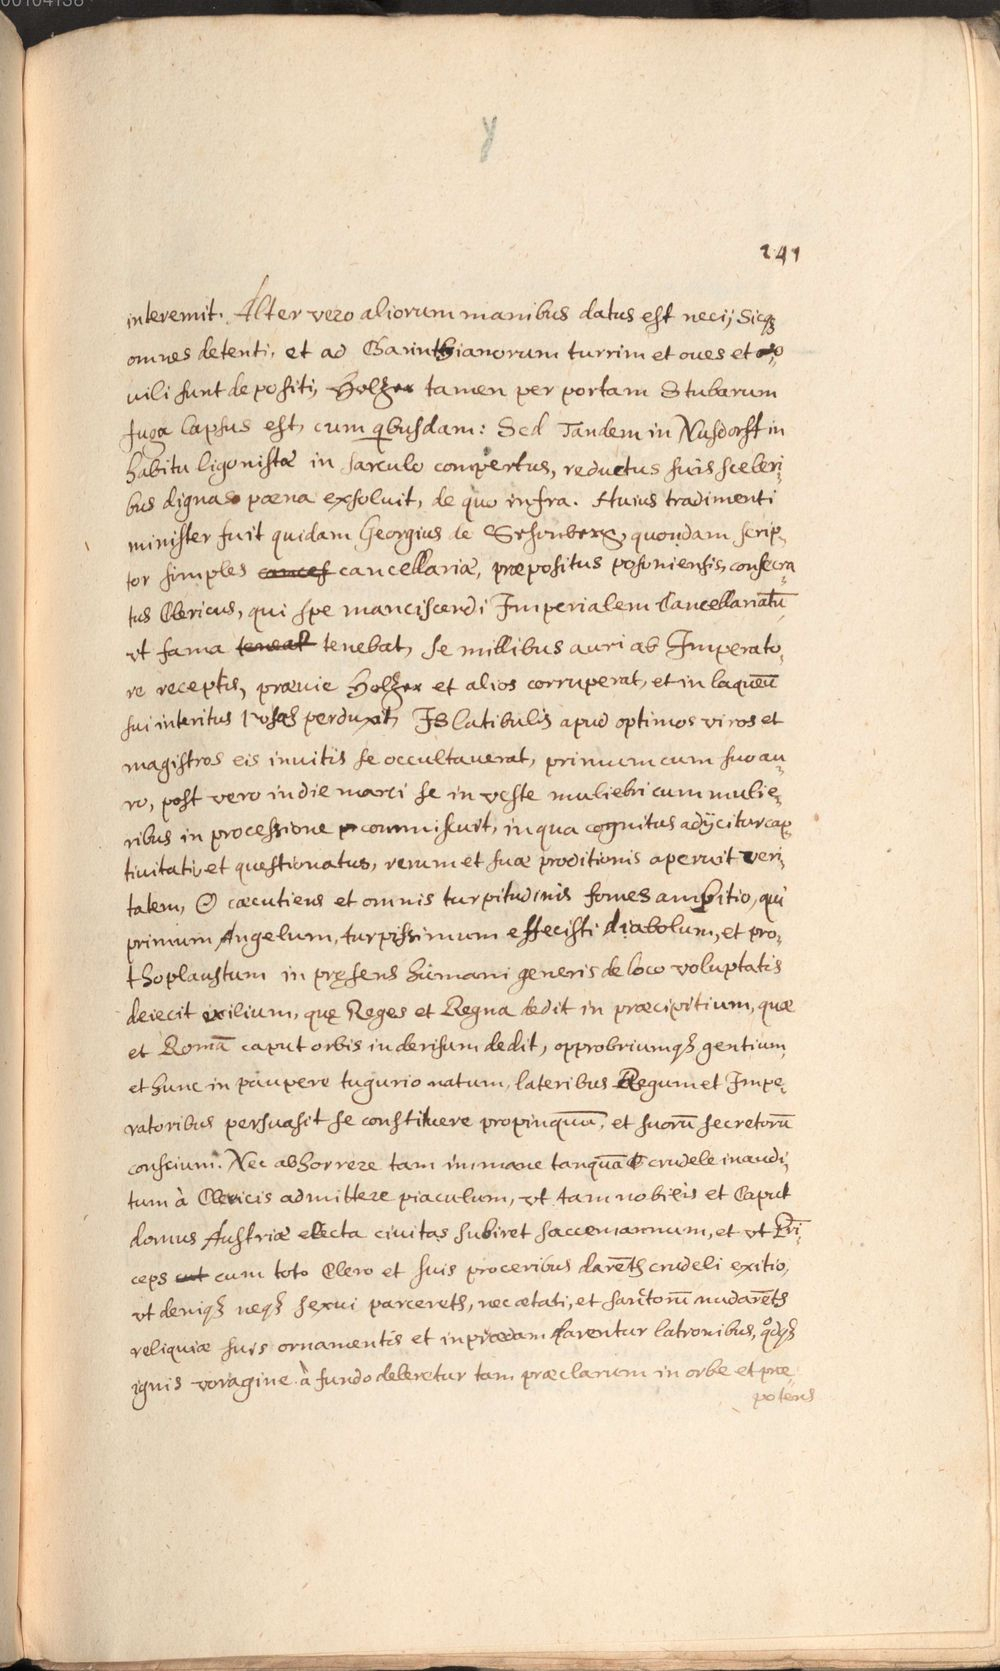 00104138
y
241
interemit. Alter vero aliorum manibus datus est neci, Sicq3
omnes detenti, et ad Charinthianorum turrim et oues et o-
uili sunt depositi, Holzer tamen per portam Stubarum
fuga lapsus est, cum qbusdam: Sed Tandem in Nusdorff in
habitu ligonistæ in sarculo compertus, reductus suis sceleri,
bus dignas pœna exsoluit, de quo infra. Huius tradimenti
minister fuit quidam Georgius de Schonberg, quondam scrip,
tor simplex cancellariæ, præpositus posoniensis, consecra,
tus Clericus, qui spe manciscendi Imperialem Cancellariatū
vt fama tenebat, se millibus auri ab Imperato,
re receptis, prævie Holzer et alios corruperat, et in laqueū
sui interitus perduxit, Is latibulis apud optimos viros et
magistros eis inuitis se occultauerat, primum cum suo au,
ro, post vero in die marci se in veste muliebri cum mulie,
ribus in processione commiscuit, in qua cognitus adijcitur cap,
tiuitati, et questionatus, rerum et suæ proditionis aperuit veri,
tatem, O cæcutiens et omnis turpitudinis fomes ambitio, qui
primum Angelum, turpissimum effecisti diabolum, et pro,
thoplaustum in pręsens humani generis de loco voluptatis
deiecit exilium, quę Reges et Regna dedit in præcipitium, quæ
et Romā caput orbis in derisum dedit, opprobriumq3 gentium,
et hunc in paupere tugurio natum, lateribus Regum et Impe,
ratoribus persuasit se constituere propinquū, et suorū secretorū
conscium. Nec abhorrere tam immane tanquā crudele inaudi,
tum à Clericis admittere piaculum, vt tam nobilis et Caput
domus Austriæ electa ciuitas subiret saccemannum, et vt Pri,
ceps cum toto Clero et suis proceribus darēt3 crudeli exitio,
vt deniq3 neq3 sexui parceret3, nec ætati, et sanctorū nudarēt3
reliquiæ suis ornamentis et in prædam darentur latronibus, qdq3
ignis voragine à fundo deleretur tam præclarum in orbe et præ,
potens